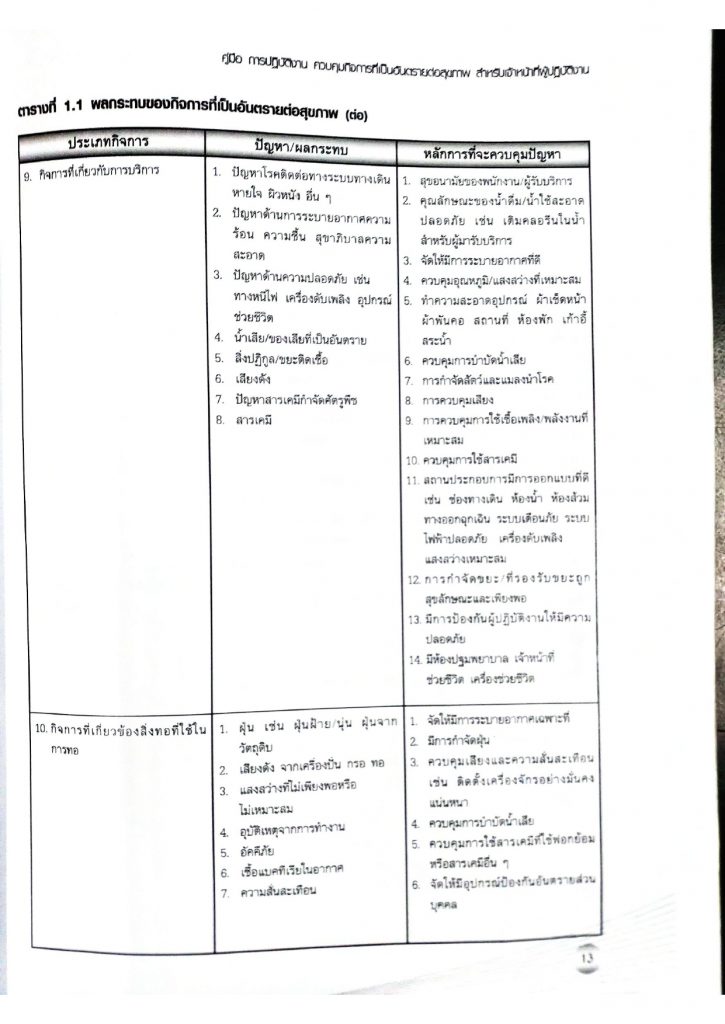 คู่มือ การปฏิบัติงาน ควบคุมกิจการที่เป็นอันตรายต่อสุขภาพ สำหรับเจ้าหน้าที่ผู้ปฏิบัติงาน
ตารางที่ 1.1 ผลกระทบของกิจการที่เป็นอันตรายต่อสุขภาพ (ต่อ)
ประเภทกิจการ
ปัญหา/ผลกระทบ
หลักการที่จะควบคุมปัญหา
9. กิจการที่เกี่ยวกับการบริการ
1. ปัญหาโรคติดต่อทางระบบทางเดิน
หายใจ ผิวหนัง อื่น ๆ
2. ปัญหาด้านการระบายอากาศความ
ร้อน ความชื้น สุขาภิบาลความ
สะอาด
3. ปัญหาด้านความปลอดภัย เช่น
ทางหนีไฟ เครื่องดับเพลิง อุปกรณ์
ช่วยชีวิต
4. น้ำเสีย/ของเสียที่เป็นอันตราย
5. สิ่งปฏิกูล/ขยะติดเชื้อ
6. เสียงดัง
7. ปัญหาสารเคมีกำจัดศัตรูพืช
8. สารเคมี
1. สุขอนามัยของพนักงาน/ผู้รับบริการ
2. คุณลักษณะของน้ำดื่ม/น้ำใช้สะอาด
ปลอดภัย เช่น เติมคลอรีนในน้ำ
สำหรับผู้มารับบริการ
3. จัดให้มีการระบายอากาศที่ดี
4. ควบคุมอุณหภูมิ/แสงสว่างที่เหมาะสม
5. ทำความสะอาดอุปกรณ์ ผ้าเช็ดหน้า
ผ้าพันคอ สถานที่ ห้องพัก เก้าอี้
สระน้ำ
6. ควบคุมการบำบัดน้ำเสีย
7. การกำจัดสัตว์และแมลงนำโรค
8. การควบคุมเสียง
9. การควบคุมการใช้เชื้อเพลิง/พลังงานที่
เหมาะสม
10. ควบคุมการใช้สารเคมี
11. สถานประกอบการมีการออกแบบที่ดี
เช่น ช่องทางเดิน ห้องน้ำ ห้องส้วม
ทางออกฉุกเฉิน ระบบเตือนภัย ระบบ
ไฟฟ้าปลอดภัย เครื่องดับเพลิง
แสงสว่างเหมาะสม
12. การกำจัดขยะ/ที่รองรับขยะถูก
สุขลักษณะและเพียงพอ
13. มีการป้องกันผู้ปฏิบัติงานให้มีความ
ปลอดภัย
14. มีห้องปฐมพยาบาล เจ้าหน้าที่
ช่วยชีวิต เครื่องช่วยชีวิต
10. กิจการที่เกี่ยวข้องสิ่งทอที่ใช้ใน
การทอ
1. ฝุ่น เช่น ฝุ่นฝ้าย/นุ่น ฝุ่นจาก
วัตถุดิบ
2. เสียงดัง จากเครื่องปั่น กรอ ทอ
3. แสงสว่างที่ไม่เพียงพอหรือ
ไม่เหมาะสม
4. อุบัติเหตุจากการทำงาน
5. อัคคีภัย
6. เชื้อแบคทีเรียในอากาศ
7. ความสั่นสะเทือน
1. จัดให้มีการระบายอากาศเฉพาะที่
2. มีการกำจัดฝุ่น
3. ควบคุมเสียงและความสั่นสะเทือน
เช่น ติดตั้งเครื่องจักรอย่างมั่นคง
แน่นหนา
4. ควบคุมการบำบัดน้ำเสีย
5. ควบคุมการใช้สารเคมีที่ใช้ฟอกย้อม
หรือสารเคมีอื่น ๆ
6. จัดให้มีอุปกรณ์ป้องกันอันตรายส่วน
บุคคล
13